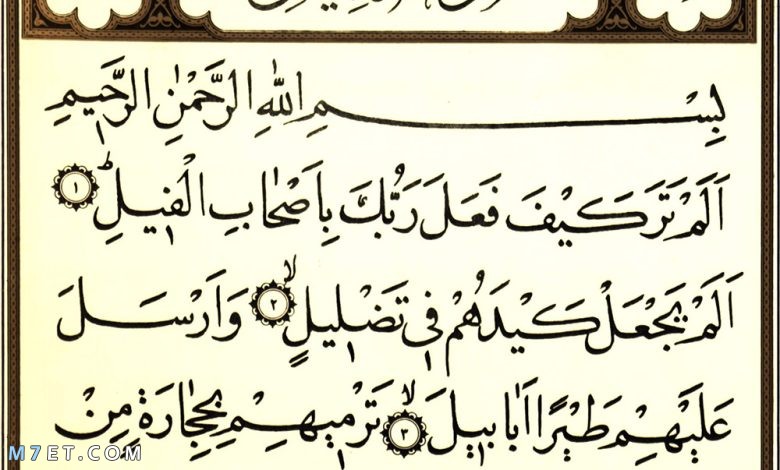 بِسْمِ اللّٰهِ الرَّحْمٰنِ الرَّحٖيمِ
اَلَمْ تَرَ كَيْفَ فَعَلَ رَبُّكَ بِاَصْحَابِ الْفٖيلِؕ ﴿١﴾
اَلَمْ يَجْعَلْ كَيْدَهُمْ فٖى تَضْلٖيلٍۙ ﴿٢﴾ وَاَرْسَلَ
عَلَيْهِمْ طَيْرًا اَبَابٖيلَۙ ﴿٣﴾ تَرْمٖيهِمْ بِحِجَارَةٍ مِنْ
M7ET.COM